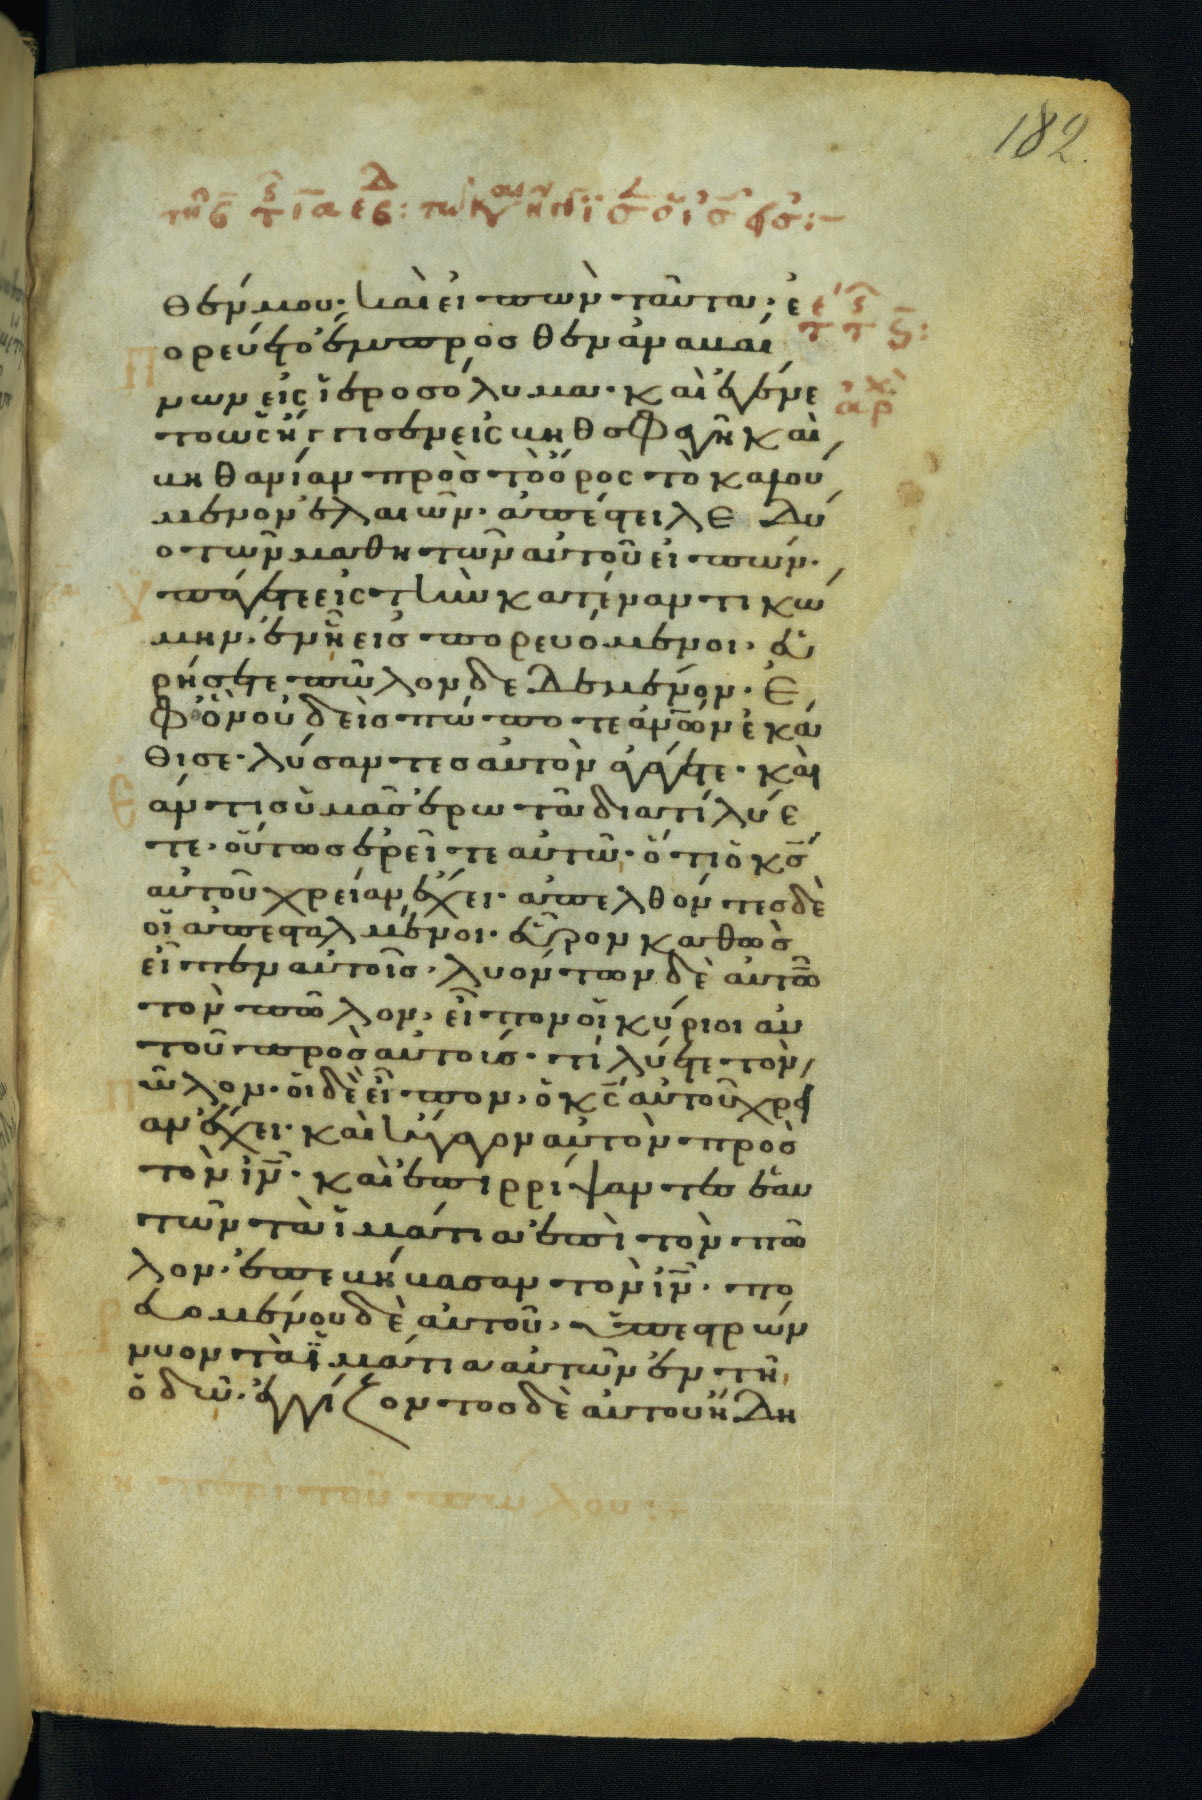 182.
θέν μου· καὶ εἰπὼν ταῦτα, ἐ
πορεύετο ἔμπροσθεν ἀναβαί
νων εἰς ἱεροσόλυμα· καὶ ἐγένε
το ὡς ἤγγισεν εἰς βηθσφαγῆ καὶ
βηθανίαν πρὸς τὸ ὄρος τὸ καλού
μενον ἐλαιῶν· ἀπέστειλε δύ
ο τῶν μαθητῶν αὐτοῦ εἰπών·
ὑπάγετε εἰς τὴν κατέναντι κώ
μην· ἐν ᾗ εἰσπορευόμενοι, εὑ
ρήσετε πῶλον δεδεμένον· ἐ
φ' ὃν οὐδεὶς πώποτε ἀνῶν ἐκά
θισε· λύσαντες αὐτὸν ἀγάγετε· καὶ
ἐάν τις ὑμᾶς ἐρωτᾶ διατί λύε
τε· οὕτως ἐρεῖτε αὐτῶ· ὅτι ὁ κς
αὐτοῦ χρείαν ἔχει· ἀπελθόντες δὲ
οἱ ἀπεσταλμένοι· εὗρον καθὼς
εἶπεν αὐτοῖς· λυόντων δὲ αὐτῶ
τὸν πῶλον, εἶπον οἱ κύριοι αὐ
τοῦ πρὸς αὐτούς· τί λύετε τὸν
πῶλον· οἱ δὲ εἶπον, ὁ κς αὐτοῦ χρεί
αν ἔχει· καὶ ἤγαγον αὐτὸν πρὸς
τὸν ιν· καὶ ἐπιρρίψαντες ἑαυ
τῶν τὰ ἱμάτια ἐπὶ τὸν πῶ
λον· ἐπεβήβασαν τὸν ιν· πο
ρευομένου δὲ αὐτοῦ, ὑπεστρών
νυον τὰ ἱμάτια αὐτῶν ἐν τῆ
ὁδῶ· ἐγγίζοντος δὲ αὐτοῦ ἤδη